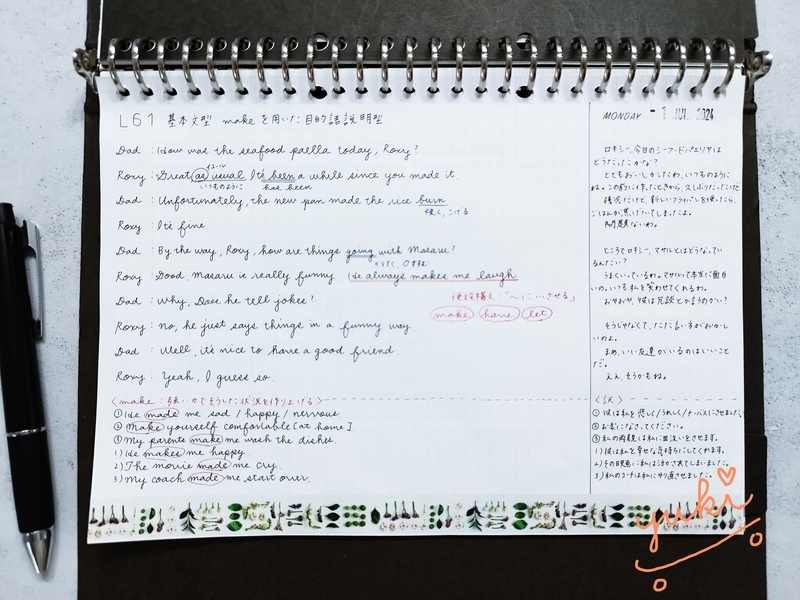 L61 基本文型 make を用いた目的語説明型
MONDAY - 1 JUL. 2024
Dad : How was the seafood paella today, Roxy?
Roxy : Great as usual It's been a while since you made it
いつものように has been
Dad : Unfortunately, the new pan made the rice burn
焼く, こげる
Roxy : It's fine.
Dad : By the way, Roxy, how are things going with Masaru?
Roxy : Good. Masaru is really funny He always makes me laugh
使役構文:「〜に…させる」
Dad : Why, Does he tell jokes?
make have let
Roxy : No, he just says things in a funny way
Dad : Well, it's nice to have a good friend
Roxy : Yeah, I guess so.
〈make : 強い力でそうした状況を作り上げる〉
① He made me sad / happy / nervous.
② Make yourself comfortable [at home].
③ My parents make me wash the dishes.
1) He makes me happy
2) The movie made me cry.
3) My coach made me start over.
ロキシー、今日のシーフードパエリアは
どうだったかな?
とてもおいしかったわ、いつものように
ね。
残念だけど、新しいフライパンを使ったら、
ごはんが焦げついてしまったよ。
問題ないわ。
ところでロキシー、マサルとはどうなってい
るんだい?
うまくいっているわ。マサルって本当に面白
いの。いつも私を笑わせてくれるわ。
おやおや、彼は冗談とか言うのかい?
そうじゃなくて、ただ言い方がおかし
いのよ。
まあ、いい友達がいるのはいいこと
だ。
ええ、そうかもね。
〈訳〉
① 彼は私を悲しく/うれしく/ナーバスにさせました
② お楽になさってください。
③ 私の両親は私に皿洗いをさせます。
1) 彼は私を幸せな気持ちにしてくれます。
2) その映画に私は泣かされてしまいました。
3) 私のコーチは私にやり直させました。
yuki